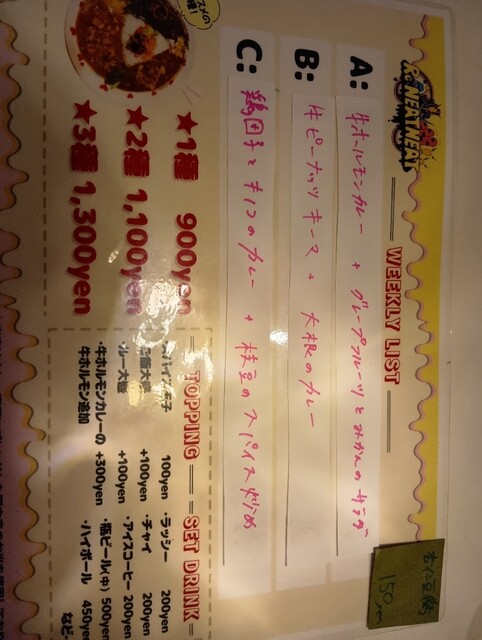 WEEKLY LIST
A: 牛ホールモンカレー + グレープフルーツとみかんのサラダ
B: 牛ピーナッツキーマ + 大根のカレー
C: 鶏団子とキノコのカレー + 枝豆のスパイス炒め
杏仁豆腐
150yen
★1種 900yen
★2種 1,100yen
★3種 1,300yen
TOPPING
100yen
+100yen
・ルー大盛 +100yen
・牛ホルモンカレーの +300yen
牛ホルモン追加
SET DRINK
・ラッシー 200yen
・チャイ 200yen
・アイスコーヒー 200yen
・瓶ビール(中) 500yen
・ハイボール 450yen
など